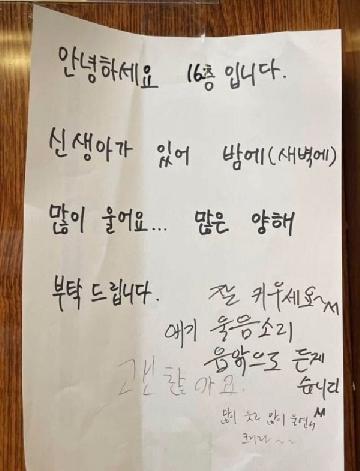 안녕하세요 16층 입니다.
신생아가 있어 밤에(새벽에)
많이 울어요... 많은 양해
부탁 드립니다.
잘 키우세요~
애기 울음소리
음악으로 듣게
습니다
괜찮아요.
많이
크니라~~